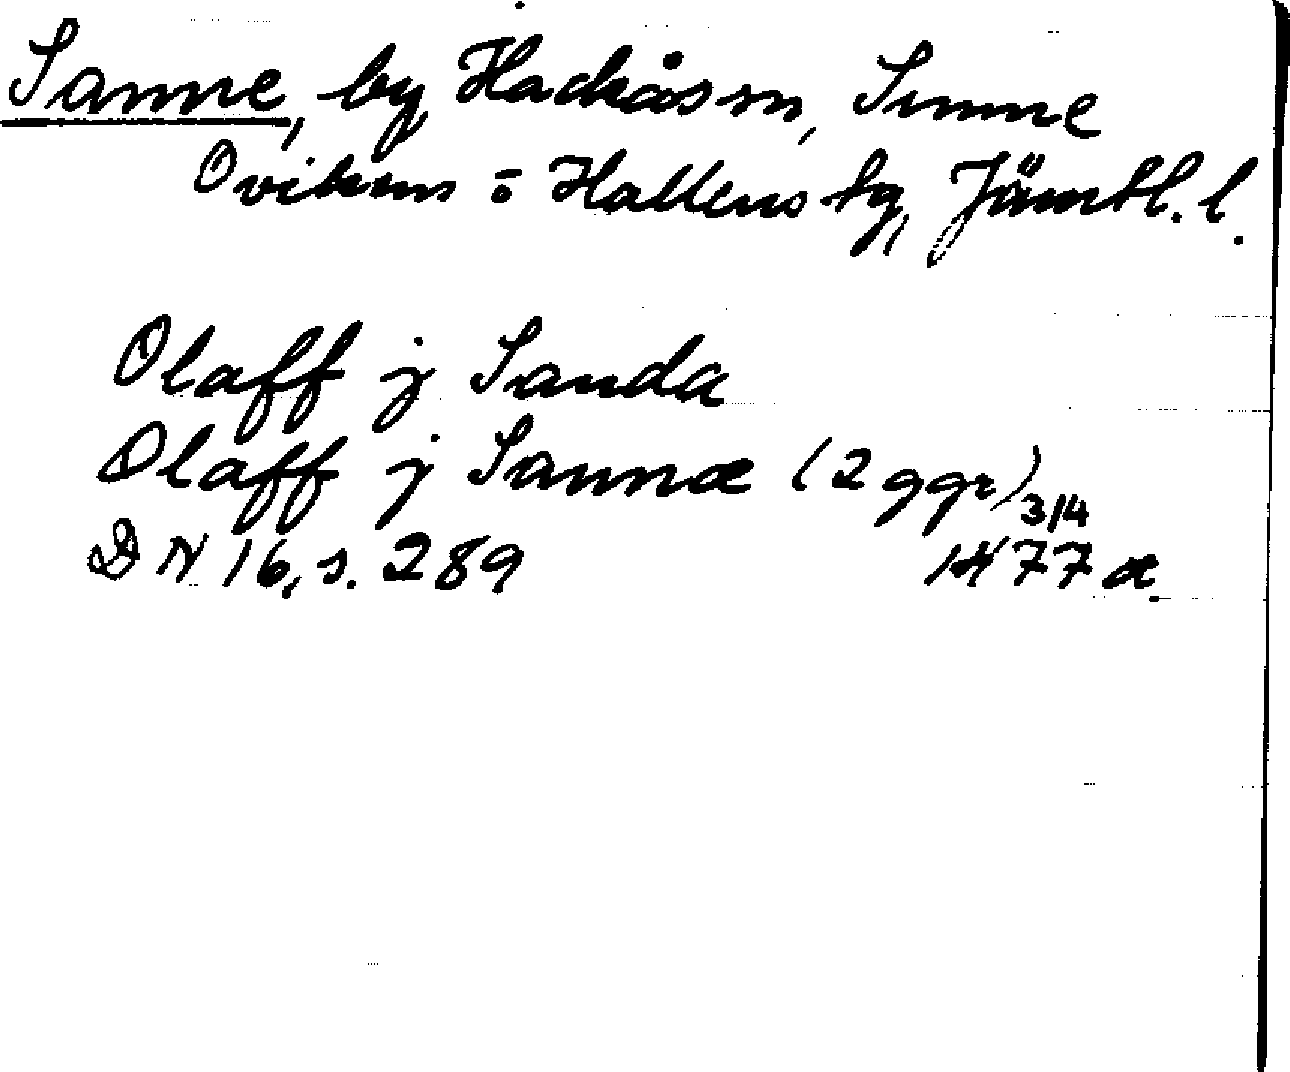 Sanne, by Hackås sn, Sunne
Ovikens o Hallens tg, Jämtl. l.
Olaff j Sanda
Olaff j Sannæ (2 ggr) 3/4
DN 16, s. 289 1477 or.